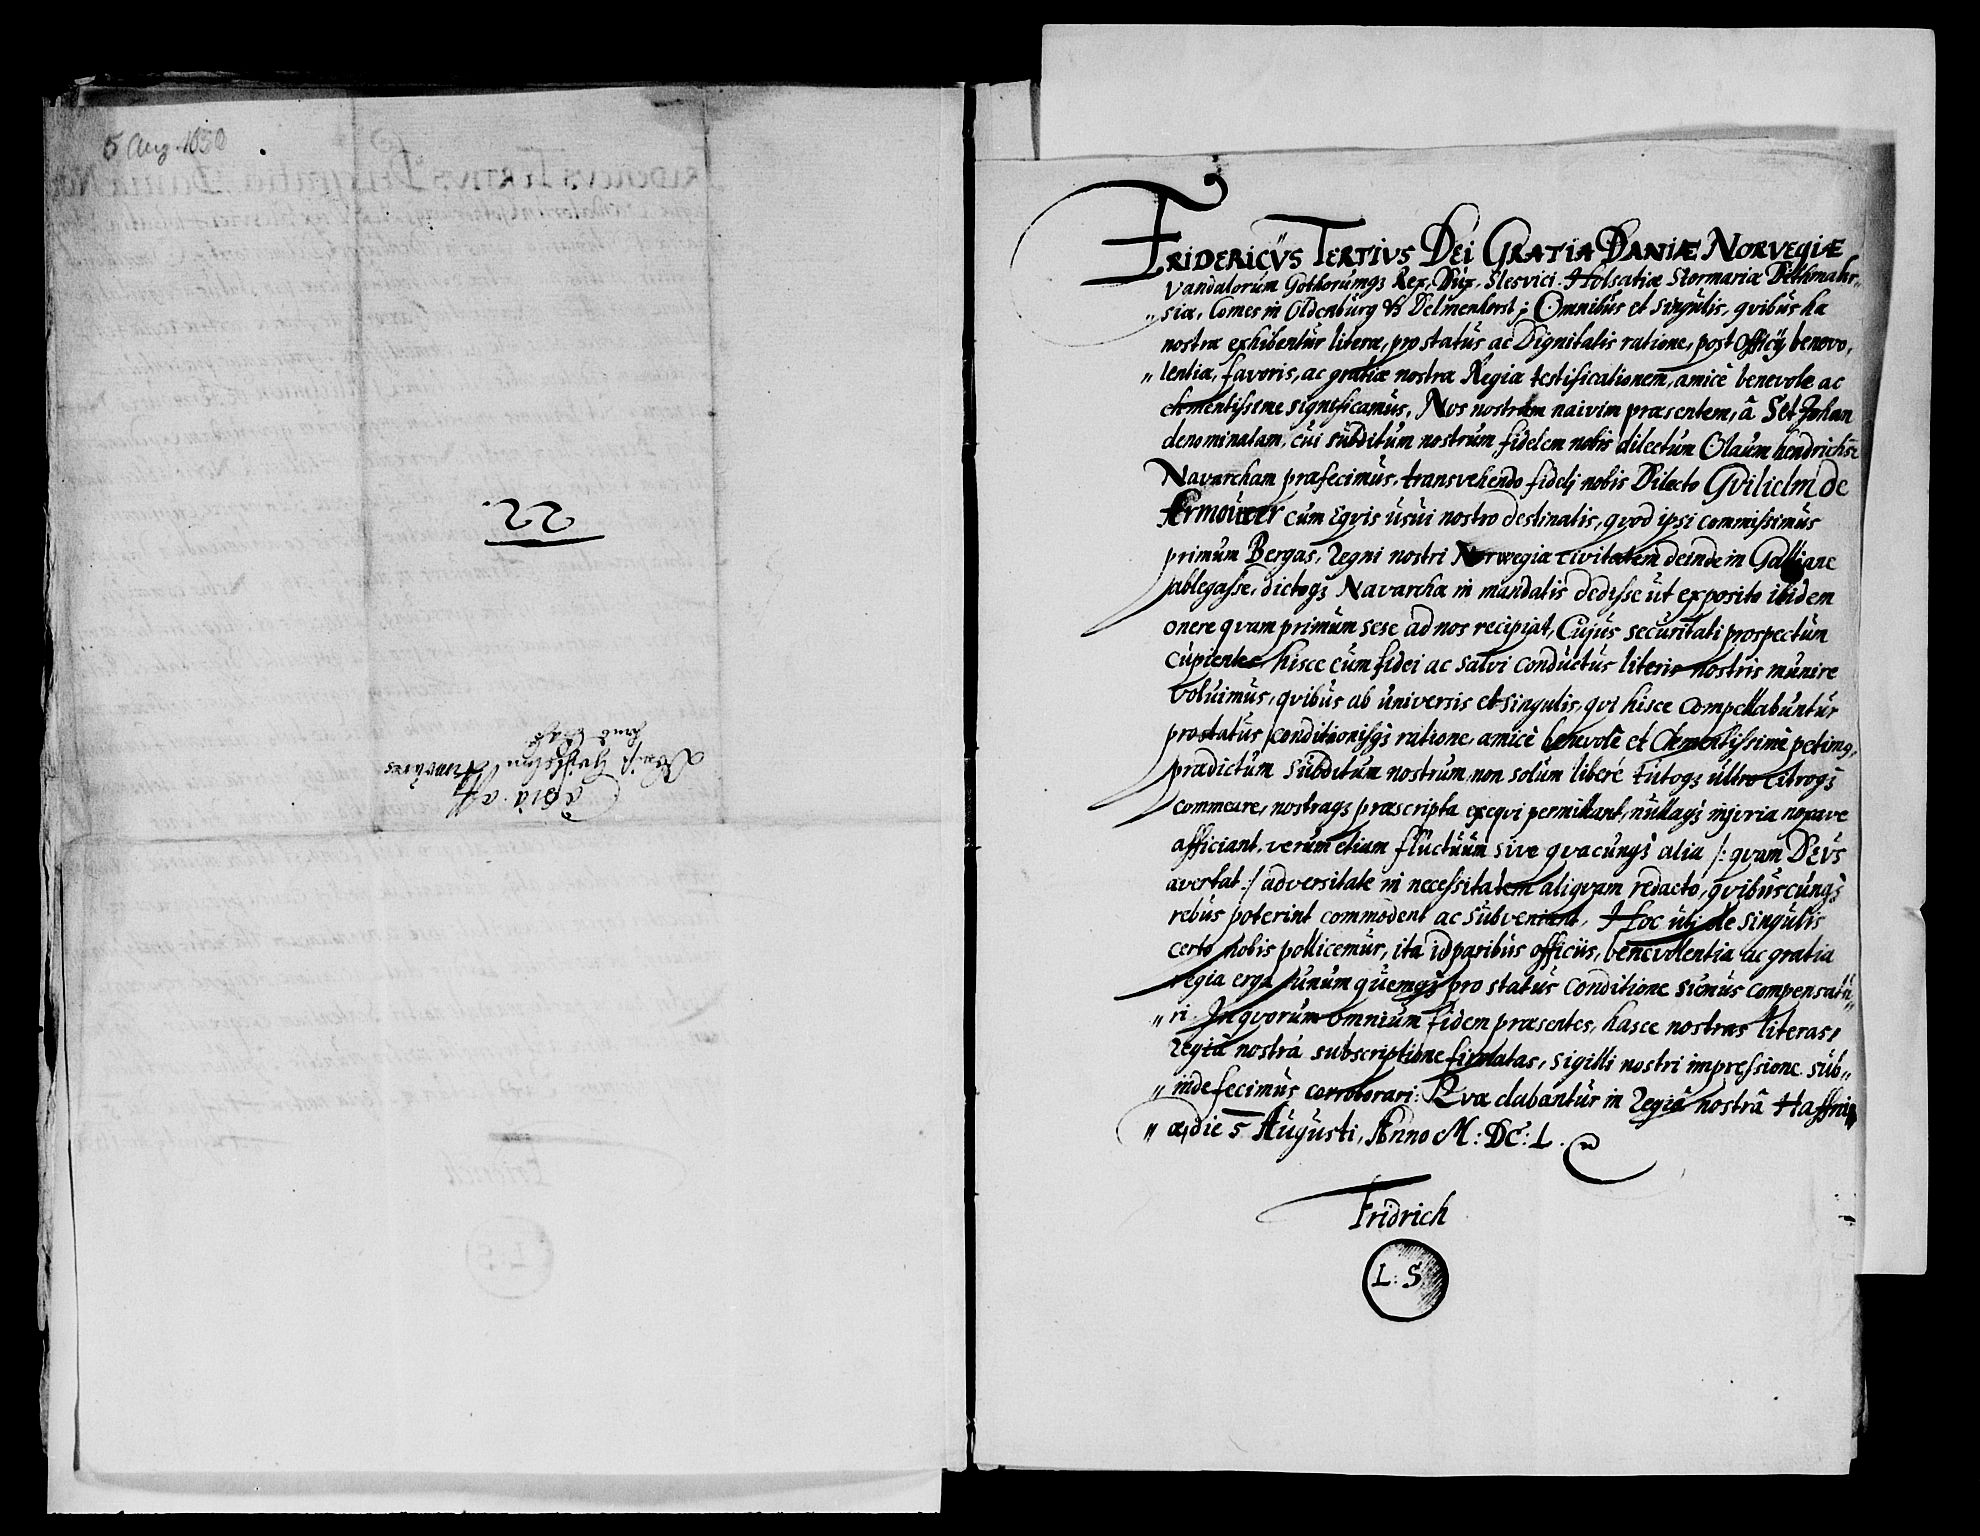 5 Aug. 1650
22.
Copia aff
FRIDERICVS TERTIVS DEI GRATIA DANIÆ NORVEGIÆ
Vandalorum Gotthorumqȝ Rex, Dux Slesvici Holsatiæ Stormariæ Dithmahr„
„ siæ, Comes in Oldenburg & Delmenhorst; Omnibus et singulis, qvibus hæ
nostræ exhibentur literæ, pro status ac Dignitatis ratione, post officij benevo„
„ lentiæ, favoris, ac gratiæ nostræ Regiæ testificationem, amicè benevole ac
clementissime significamus, Nos nostram navim præsentem, â Set Johan
denominatam, cui subditum nostrum fidelem nobis dilectum Olaum hendrichsē
Navarcham præfecimus, transvehendo fidelj nobis Dilecto Gvilielm de
Armouxer cum Eqvis usui nostro destinatis, qvod ipsi commissimus
primum Bergas, Regni nostri Norwegiæ civitatem deinde in Galliam
ablegasse, dictoqȝ Navarchæ in mandatis dedisse ut exposito ibidem
onere qvam primum sese ad nos recipiat, Cujus securitati prospectum
cupientes hisce eum fidei ac salvi conductus literis nostris munire
voluimus, qvibus ab universis et singulis, qvi hisce compellabuntur
pro status conditionisqȝ ratione, amicè benevolè et Clementissimè petimȝ,
prædictum subditum nostrum, non solum liberè tutoqȝ ultro citroqȝ
commeare, nostraqȝ præscripta exeqvi permittant, nullaqȝ injuria noxave
afficiant, verùm etiam fluctuum sive qvacunqȝ alia /: qvam DEVS
avertat :/ adversitate in necessitatem aliqvam redacto, qvibuscunqȝ
rebus poterint commodent ac subveniant, Hoc uti de singulis
certo nobis pollicemur, ita id paribus officiis, benevolentia ac gratia
regia erga unum quemqȝ pro status conditione sumus compensatu„
„ ri. In qvorum omnium fidem præsentes, hasce nostras literas,
Regiâ nostrá subscriptione firmatas, sigilli nostri impressione sub„
„ inde fecimus corroborari: Qvæ dabantur in Regiâ nostrâ Haffni„
„ æ, die 5 Augusti, Anno M: DC: L.
Fridrich
L: S